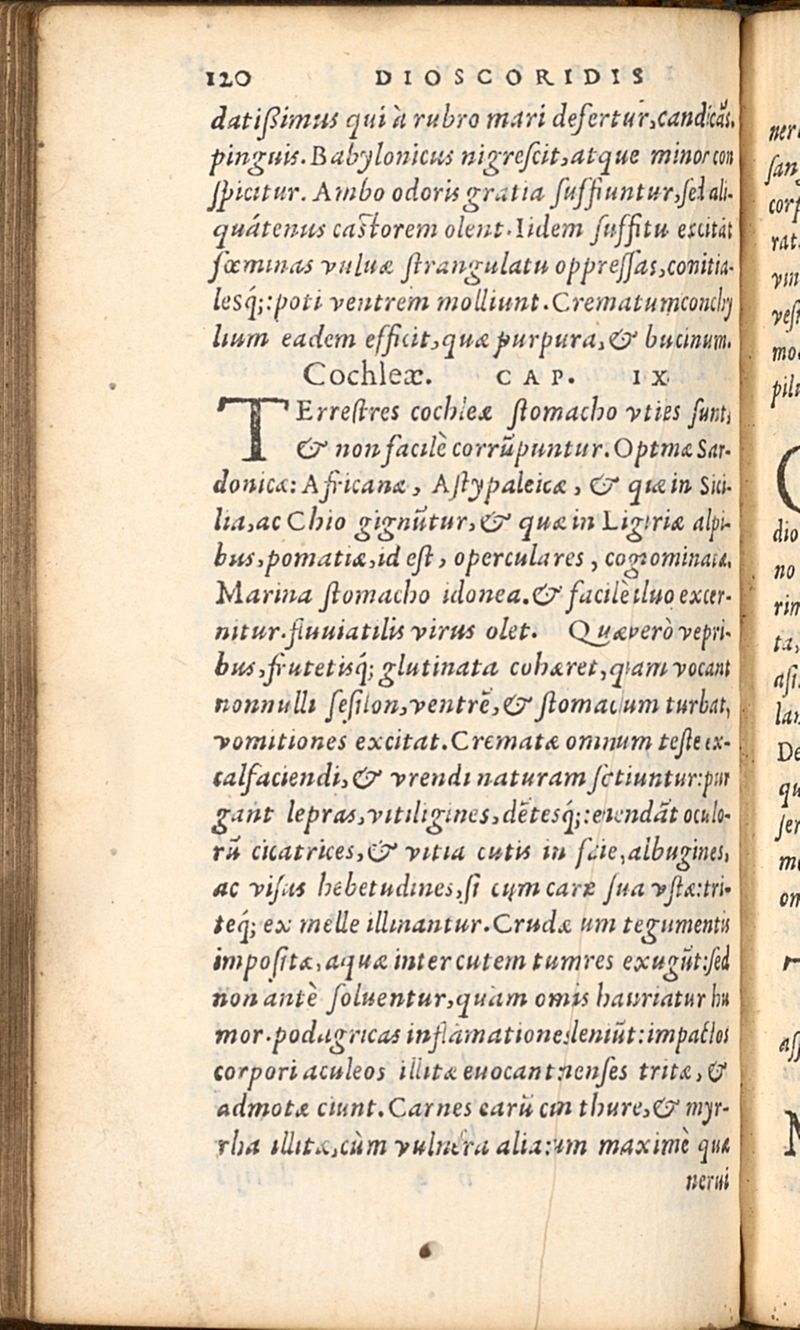 120 DIOSCORIDIS
datißimus qui à rubro mari defertur, candicãs,
pinguis. Babylonicus nigrescit, atque minor con
spicitur. Ambo odoris gratia suffiuntur, sed ali-
quátenus castorem olent. Iidem suffitu excitãt
fœminas vuluæ strangulatu oppressas, comitia-
lesq́;: poti ventrem molliunt. Crematum conchy
lium eadem efficit, quæ purpura, & bucinum.
Cochleæ. CAP. IX
TErrestres cochleæ stomacho vtiles sunt,
& non facilè corrũpuntur. Optimæ Sar-
donicæ: Africanæ, Astypaleicæ, & quæ in Sici-
lia, ac Chio gignũtur, & quæ in Liguriæ alpi-
bus, pomatiæ, id est, operculares, cognominatæ.
Marina stomacho idonea. & facilè aluo excer-
nitur. fluuiatilis virus olet. Quæ verò vepri-
bus, frutetisq́; glutinata cohæret, quam vocant
nonnulli sesilon, ventrẽ, & stomachum turbat,
vomitiones excitat. Crematæ omnium testæ ex-
calfaciendi, & vrendi naturam sortiuntur: pur
gant lepras, vitiligines, dẽtesq́;: emendãt oculo-
rũ cicatrices, & vitia cutis in facie, albugines,
ac visus hebetudines, si cum carne sua vstæ: tri-
teq́; ex melle illinantur. Crudæ cum tegumentis
impositæ, aquæ inter cutem tumores exugũt: sed
non antè soluentur, quàm omnis hauriatur hu
mor. podagricas inflãmationes leniũt: impactos
corpori aculeos illitæ euocant: menses tritæ, &
admotæ ciunt. Carnes earũ cum thure, & myr-
rha illitæ, cùm vulnera alia: tum maximè quæ
nerui